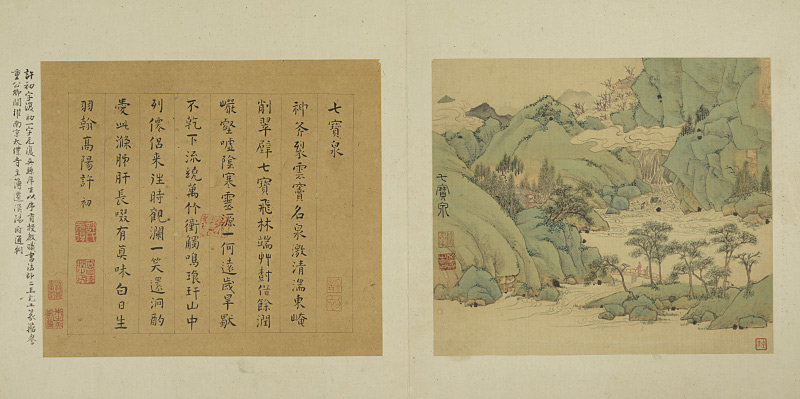 七寶泉
七寶泉
神斧裂雲竇名泉激清湍東崦
削翠壁七寶飛林端艸封餘潤
巖壑噓陰寒靈源一何遠歲旱
不乾下流繞萬竹衝觸鳴琅玕山中
列僊侶来往時觀瀾一笑還洞酌
愛此滌肺肝長啜有真味白日生
羽翰高陽許初
許初字復初一字元復吳縣學生以序貢授書法師二王尤工篆籀
重公卿間擢南京太僕寺主簿遷漢陽府通判